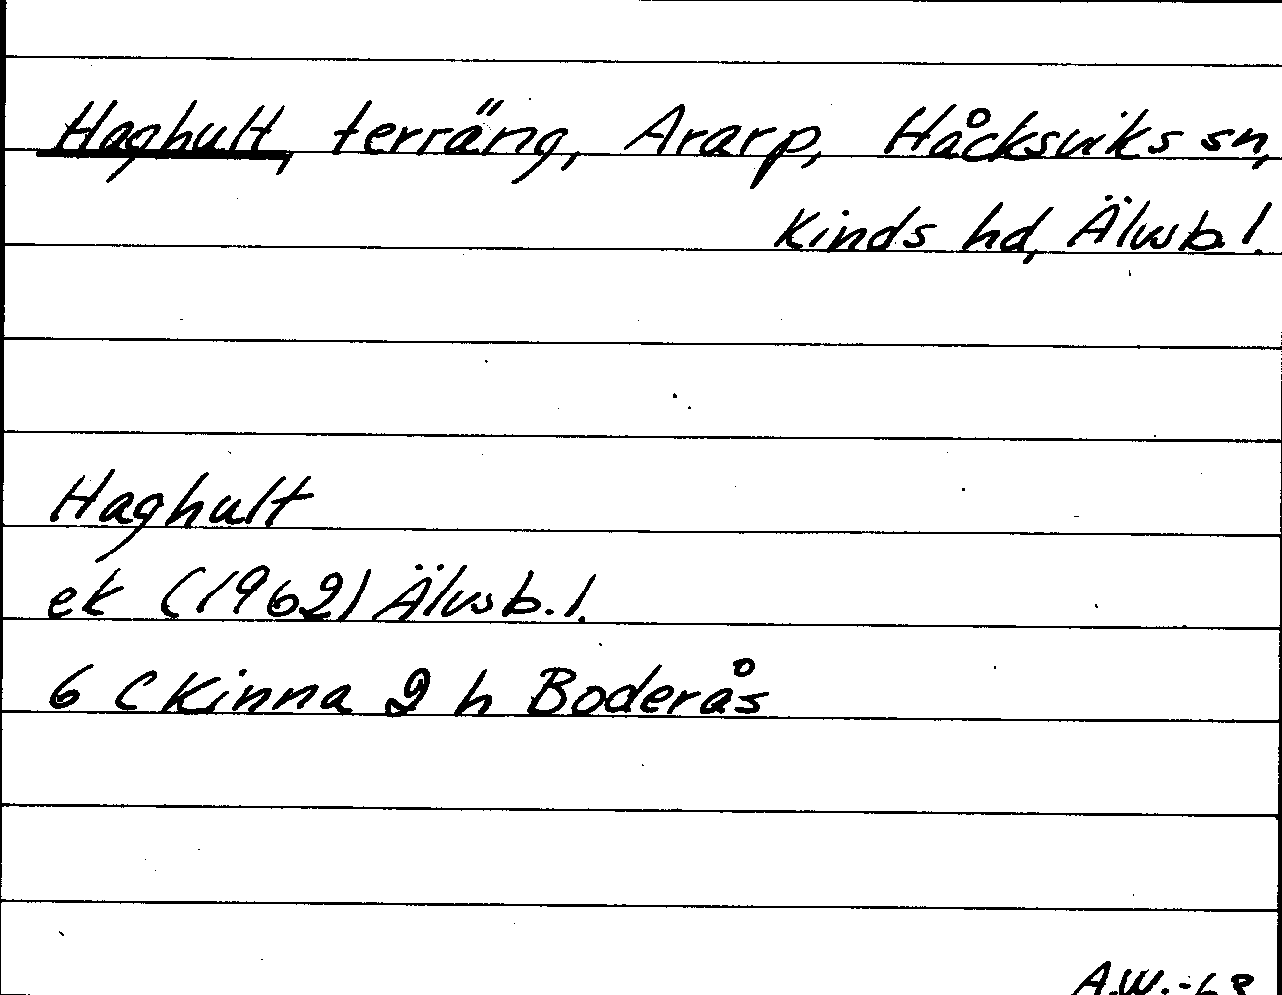 Haghult, terräng, Ararp, Håcksviks sn,
Kinds hd, Älvsb. l.
Haghult
ek (1962) Älvsb. l.
6 C Kinna 2 h Boderås
A.W.-68